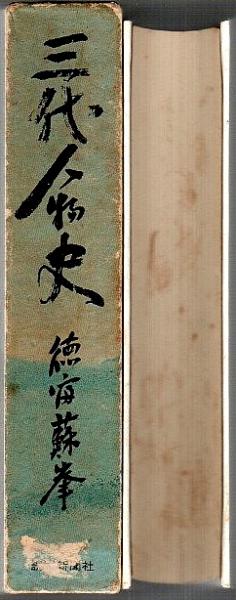 三代人物史
徳富蘇峰
新聞社